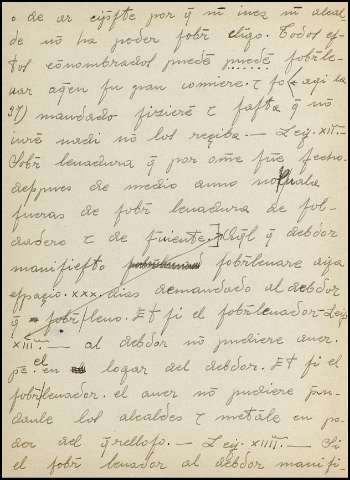 o de ar cyſſte por q̄ nī juez nī alcal
de nō ha poder ſobr̄ eligo. Todos eſ-
tos cōnombrados puedē puedē ſobr̄le-
uar aq̄en ſu pan comiere. τ ſo (aqi la
37) mandado fizierē τ faſta q̄ nō
iurē nadi nō los reciba. — Ley. XII. —
Sobr̄ leuadura q̄ por om̄e fue fecha
deſpues de medio anno no uala
fueras de ſobr̄ leuadura de ſol-
dadero τ de ſiruiente.] Aq̄l q̄ debdor
manifieſto ſobr̄leuare aya
eſpaçio. xxx. dias demandado al debdor
q̄ ſobr̄/leuo. Et ſi el ſobr̄leuador - Ley.
XIII. — al debdor nō pudiere auer.
pē. el en logar del debdor. Et ſi el
ſobr̄/leuador. el auer nō pudiere p̄n-
danle los alcaldes τ metāle en po-
der del q̄relloſo. — Ley. XIIII. — Si
el ſobr̄ leuador al debdor manifi-